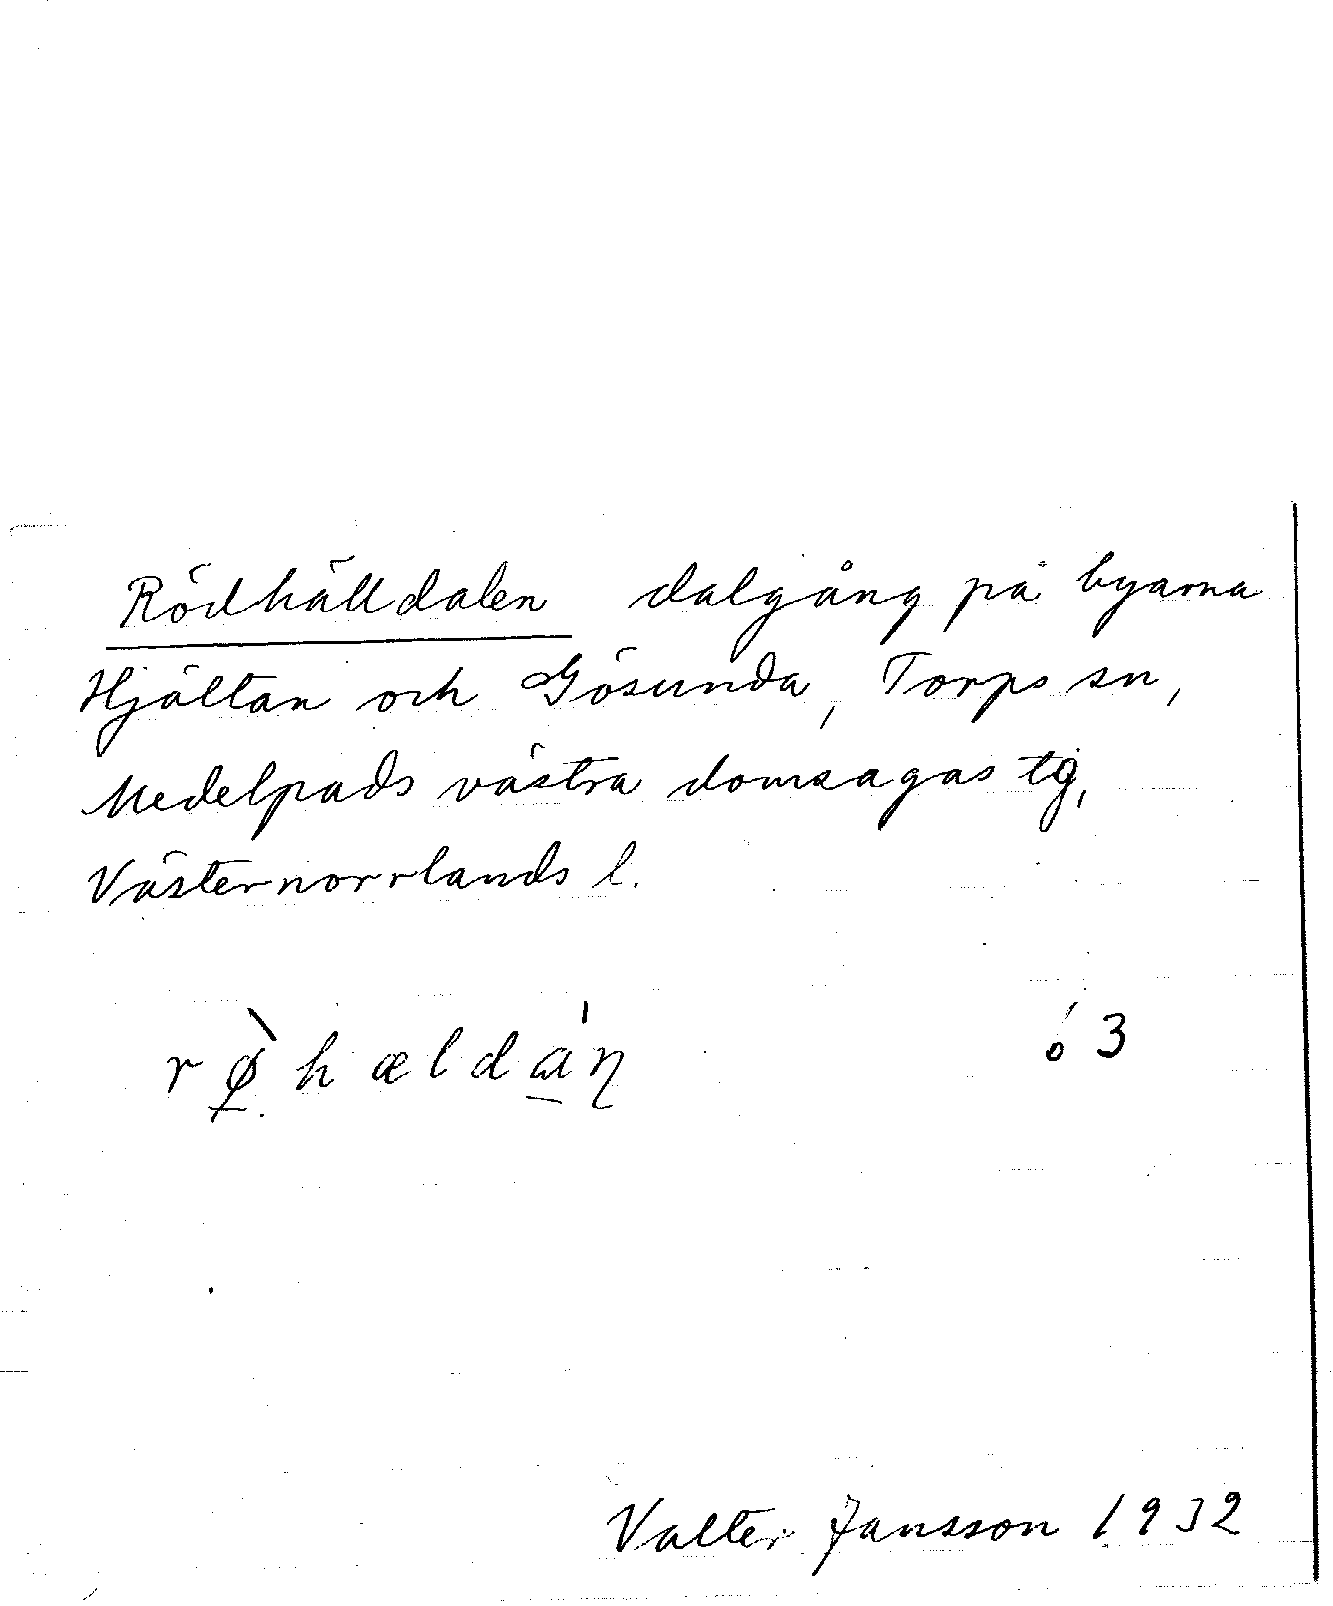 Rödhälldalen dalgång på byarna
Hjältan och Gösunda, Torps sn,
Medelpads västra domsagas tg,
Västernorrlands l.
rø̲̀hælda̲̍ŋ 63
Valter Jansson 1932